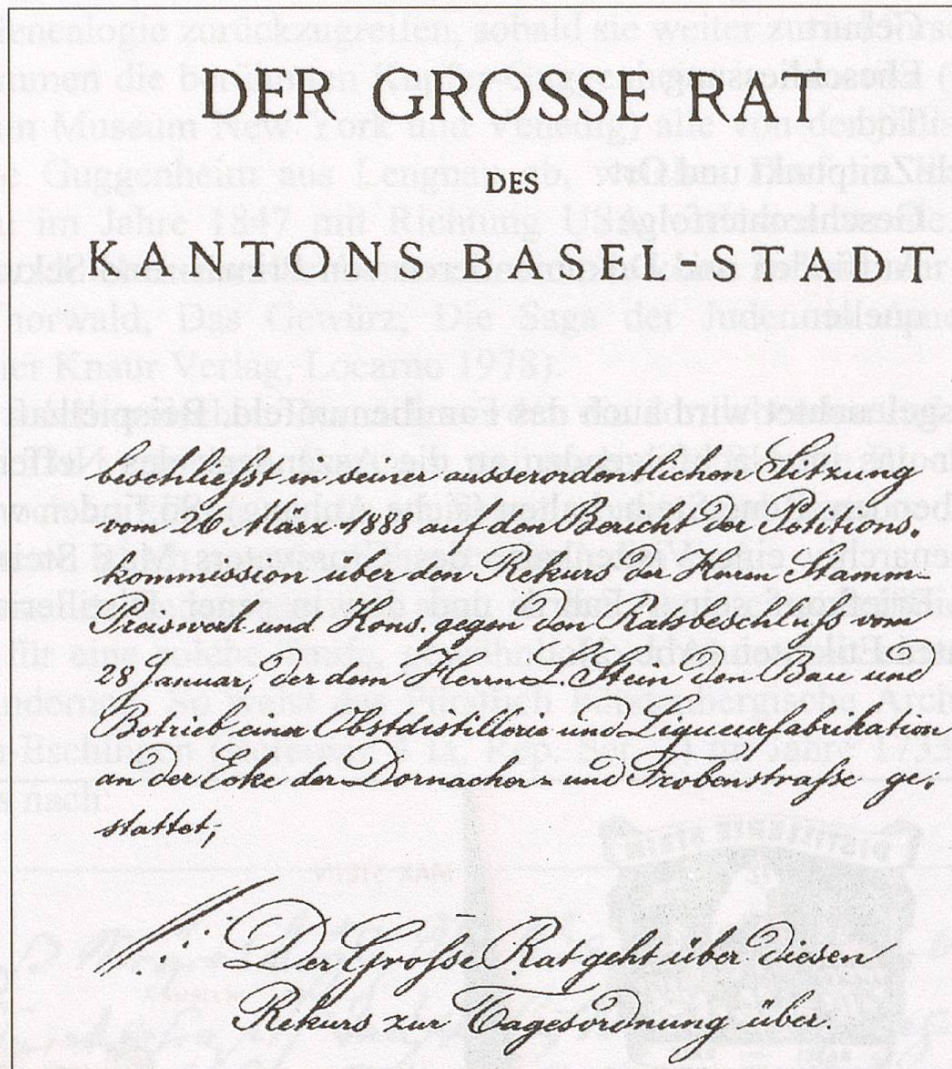 DER GROSSE RAT
DES
KANTONS BASEL-STADT
beschliesst in seiner ausserordentlichen Sitzung
vom 26 März 1888 auf den Bericht der Petitions-
kommission über den Rekurs der Herrn Stamm-
Preiswerk und Kons. gegen den Ratsbeschluss vom
28 Januar, der dem Herrn L. Stein den Bau und
Betrieb einer Obstdistillerie und Liqueurfabrikation
an der Ecke der Dornacher- und Frobenstrasse ge-
stattet,
Der Grosse Rat geht über diesen
Rekurs zur Tagesordnung über.